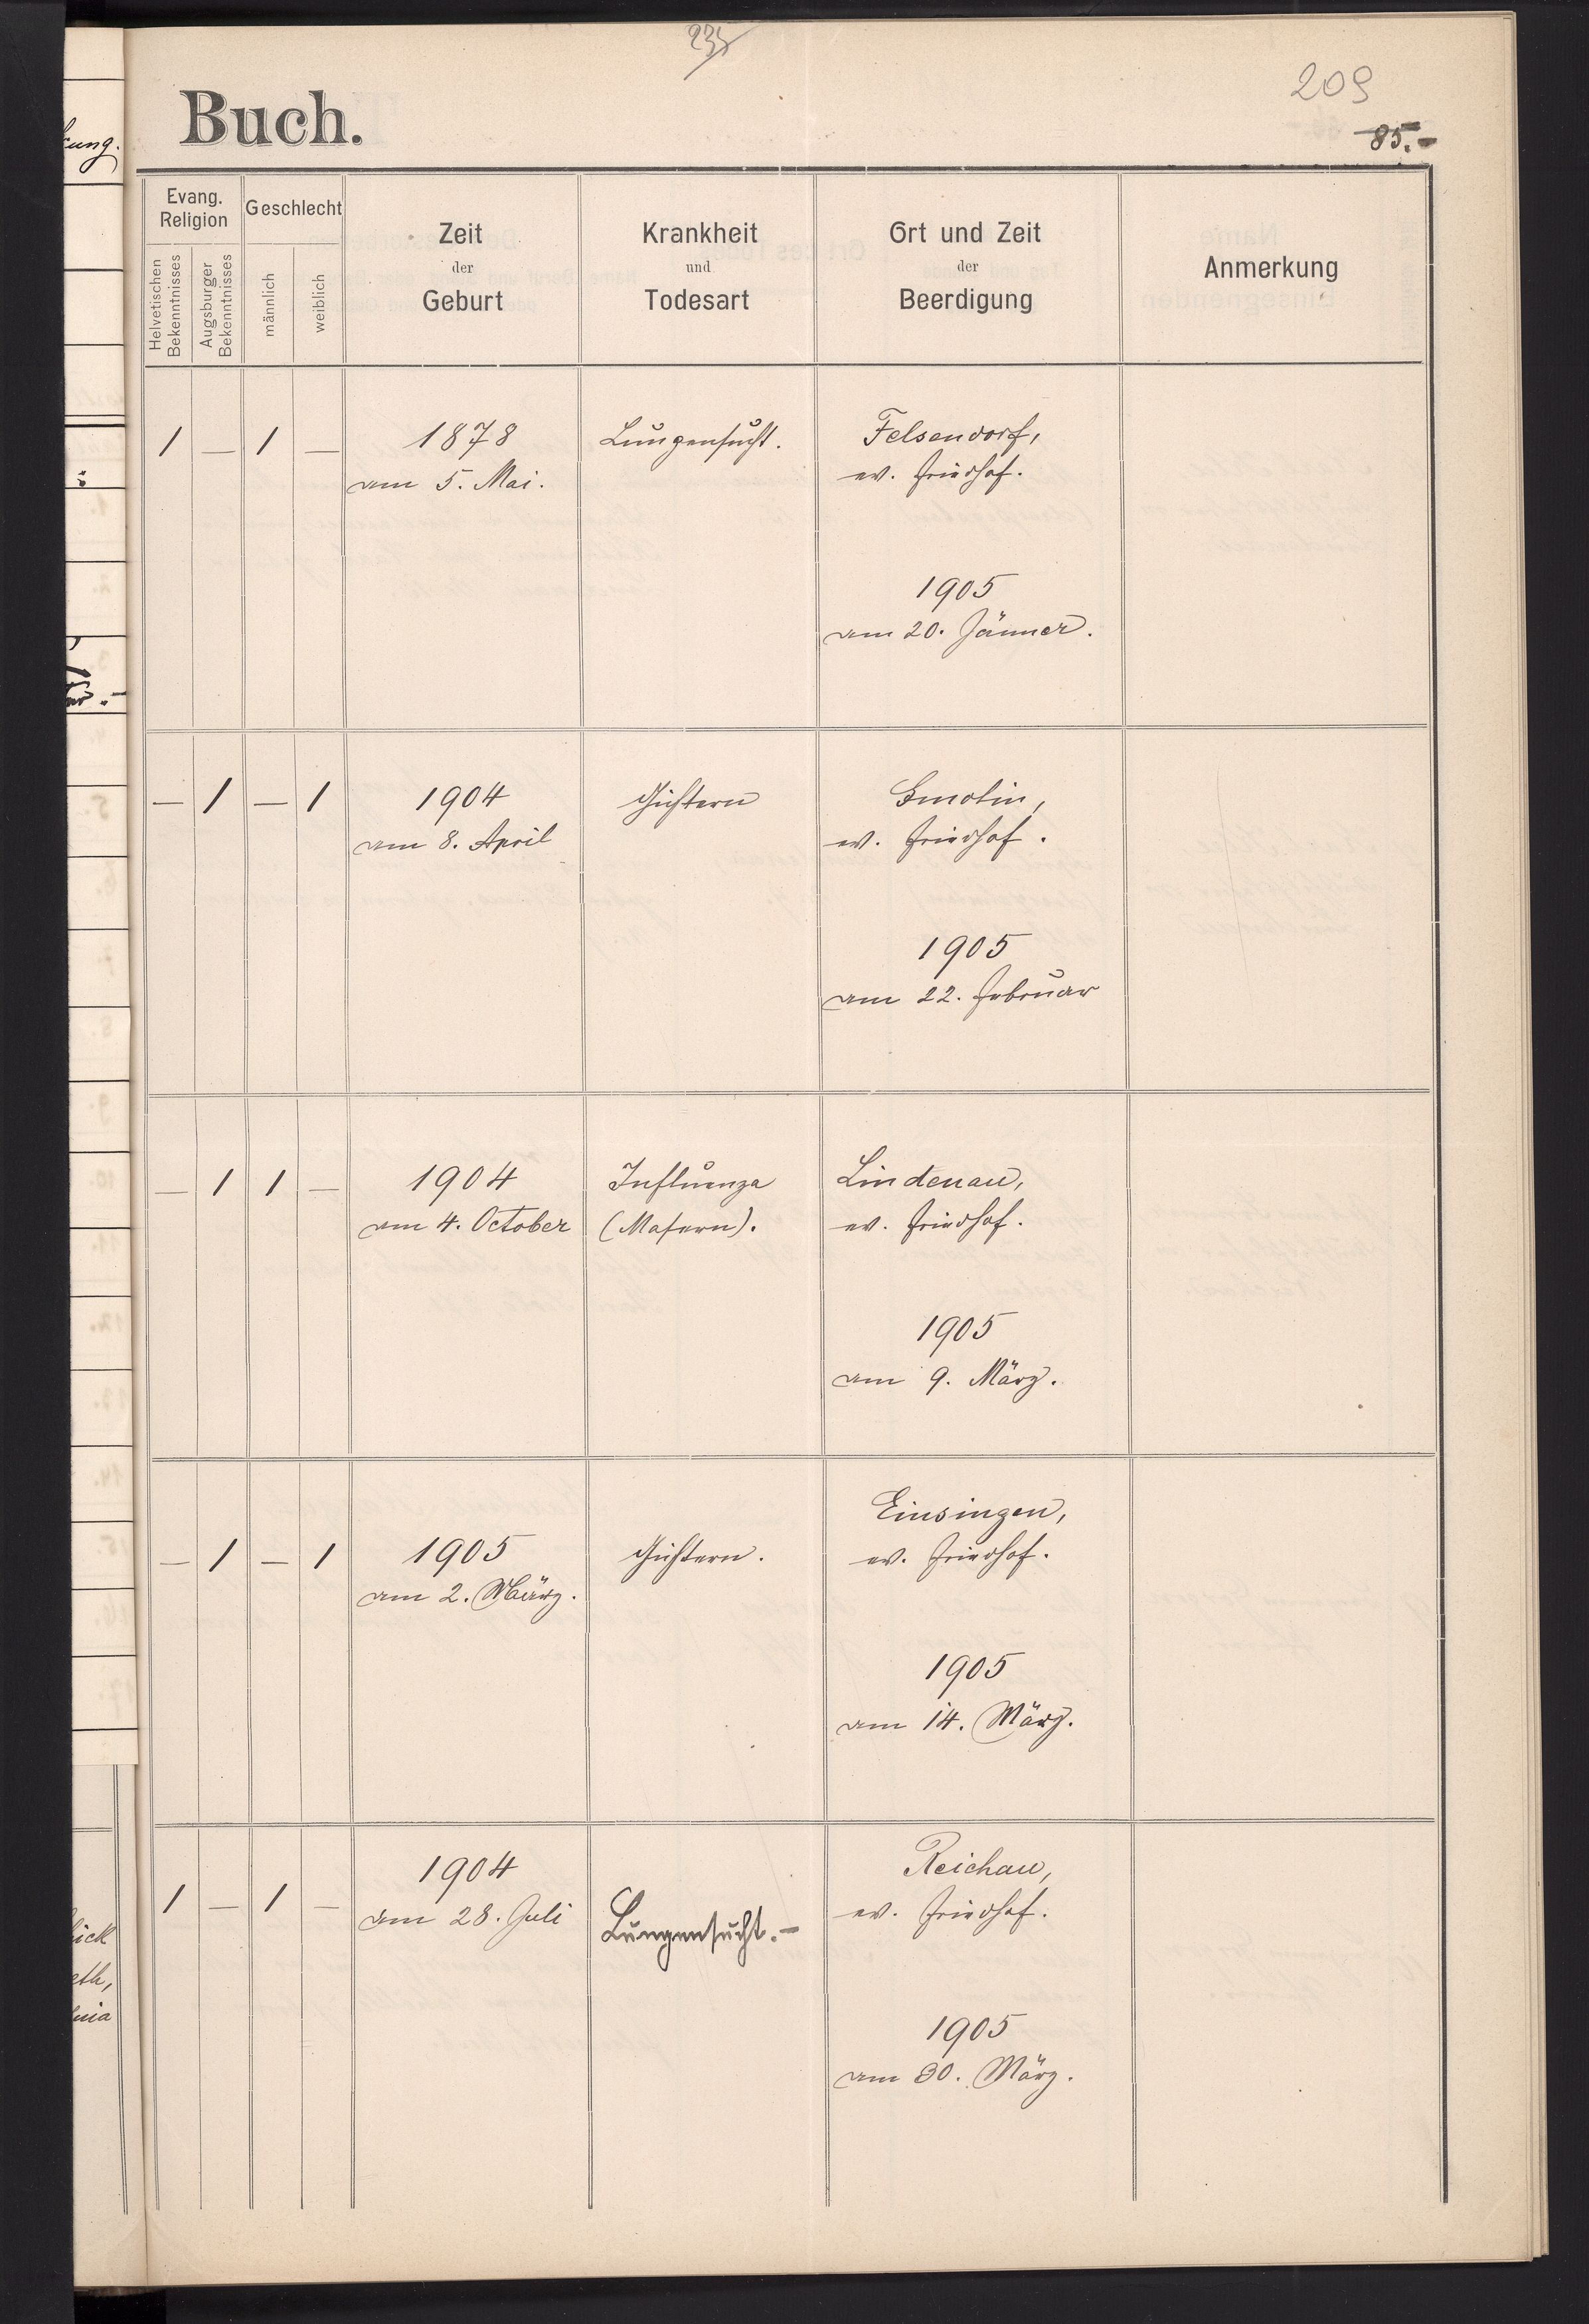 235
209
Buch.
85.-
Evang. Religion
Geschlecht
Helvetischen Bekenntnisses
Augsburger Bekenntnisses
männlich
weiblich
Zeit
der
Geburt
Krankheit
und
Todesart
Ort und Zeit
der
Beerdigung
Anmerkung
1 — 1 — 1878 Lungensucht. Felsendorf,
am 5. Mai. ev. Friedhof.
1905
am 20. Jänner.
— 1 — 1 1904 Gichtern Smolin,
am 8. April ev. Friedhof.
1905
am 22. Februar
— 1 1 — 1904 Influenza Lindenau,
am 4. October (Masern). ev. Friedhof.
1905
am 9. März.
Einsingen,
— 1 — 1 1905 Gichtern. ev. Friedhof.
am 2. März.
1905
am 14. März.
1904 Reichau,
1 — 1 — am 28. Juli Lungensucht.- ev. Friedhof.
1905
am 30. März.